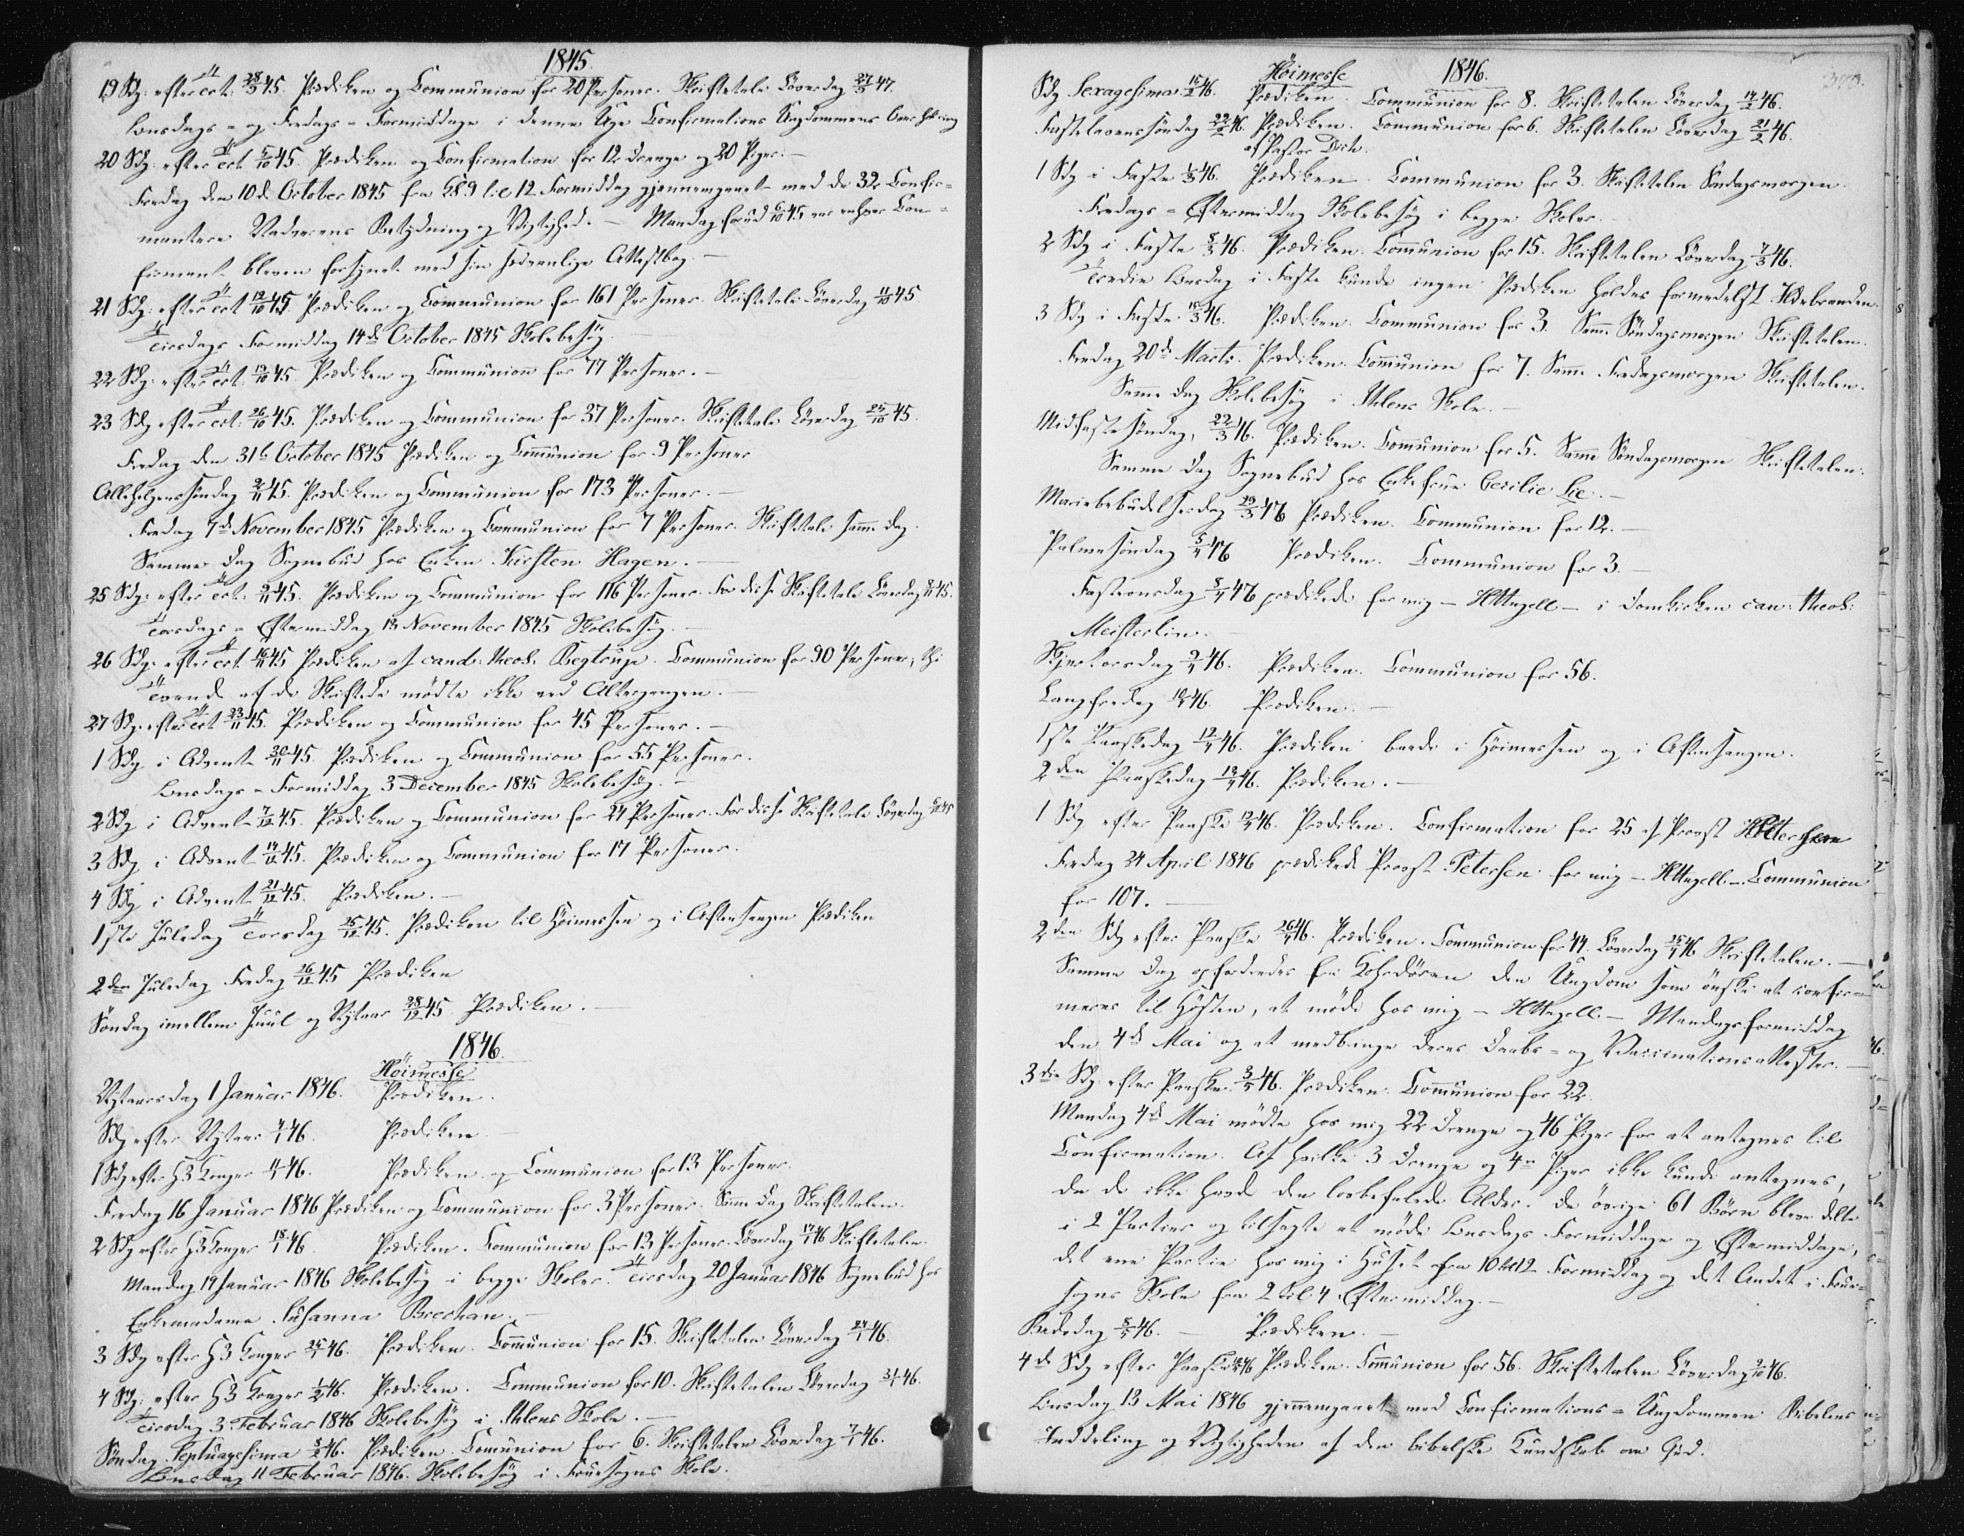 1845.
19 Sdg: efter Tr̄et. 28/9 45. Prædiken og Communion for 20 Personer. Skriftetale Löverdag 27/9 47.
Onsdags- og Fredags-Formiddage i denne Uge Confirmations Ungdommens Overhöring
20 Sdg: efter Tr̄et. 5/10 45. Prædiken og Confirmation for 12 Drenge og 20 Piger. —
Fredag den 10de October 1845 fra Kl 9 til 12 Formiddag gjennemgaaet med de 32 Confir=
manterne Nadverens Betydning og Vigtighed. — Mandag forud 6/10 45 var enhver Con=
firmant bleven forsynet med sin sædvanlige Attestbog. —
21 Sdg: efter Tr̄et 12/10 45 Prædiken og Communion for 161 Personer. Skriftetale Löverdag 11/10 45
Tirsdags Formiddag 14de October 1845 Skolebesøg. —
22 Sdg: efter Tr̄et: 19/10 45. Prædiken og Communion for 77 Personer. —
23 Sdg efter Tr̄et: 26/10 45. Prædiken og Communion for 37 Personer. Skriftetale Löverdag 25/10 45.
Fredag den 31te October 1845 Prædiken og Communion for 9 Personer
Allehelgenssöndag 2/11 45. Prædiken og Communion for 173 Personer. —
Fredag 7de November 1845 Prædiken og Communion for 7 Personer. Skriftetale samme Dag
Samme Dag Sognebud hos Enken Kirsten Hagen. —
25 Sdg: efter Tr̄et: 9/11 45. Prædiken og Communion for 116 Personer. For disse Skriftetale Löverdag 8/11 45.
Torsdags-Eftermiddag 13 November 1845 Skolebesøg. —
26 Sdg: efter Tr̄et 16/11 45 Prædiken af cand: theol. Begtrup. Communion for 90 Personer, thi
Tvende af de Skriftede mödte ikke ved Altergangen. —
27 Sdg: efter Tr̄et 23/11 45. Prædiken og Communion for 45 Personer. —
1 Sdg i Advent 30/11 45. Prædiken og Communion for 55 Personer.
Onsdags-Formiddag 3 December 1845 Skolebesøg. —
2 Sdg i Advent 7/12 45. Prædiken og Communion for 24 Personer. For disse Skriftetale Löverdag 6/12 45
3 Sdg i Advent 14/12 45. Prædiken og Communion for 17 Personer.
4 Sdg i Advent 21/12 45. Prædiken. —
1ste Juledag Torsdag 25/12 45. Prædiken til Höimessen og i Aftensangen Prædiken
2den Juledag Fredag 26/12 45 Prædiken
Söndag imellem Juul og Nytaar 28/12 45 Prædiken. —
1846.
Höimesse
Nytaarsdag 1 Januar 1846. Prædiken.
Sdg efter Nytaar 4/1 46. Prædiken —
1 Sdg efter H3 Konger 11/1 46. Prædiken og Communion for 13 Personer.
Fredag 16 Januar 1846 Prædiken og Communion for 3 Personer. Samme Dag Skriftetalen.
2 Sdg efter H3 Konger 18/1 46 Prædiken. Communion for 13 Personer. Löverdag 17/1 46 Skriftetalen
Mandag 19 Januar 1846 Skolebesøg i begge Skoler. Tirsdag 20 Januar 1846 Sognebud hos
Enkemadame Susanna Brechan. —
3 Sdg efter H3 Konger 25/1 46. Prædiken. Communion for 15. Skriftetalen Löverdag 24/1 46.
4 Sdg: efter H3 Konger 1/2 46. Prædiken. Communion for 10. Skriftetalen Löverdag 31/1 46.
Tirsdag 3 Februar 1846 Skolebesøg i Ihlens Skole. —
Söndag Septuagesima 8/2 46. Prædiken. Communion for 6. Skriftetalen Löverdag 7/2 46.
Onsdag 11 Februar 1846. Skolebesøg i Fruesogns Skole.
1846.
Höimesse
Sdg Sexagesima 15/2 46. Prædiken. Communion for 8. Skriftetalen Löverdag 14/2 46.
Fastelavenssöndag 22/2 46 Prædiken. Communion for 6. Skriftetalen Löverdag 21/2 46.
af Pastor
1 Sdg i Faste 1/3 46. Prædiken. Communion for 3. Skriftetalen Söndagsmorgen.
Fredags-Eftermiddag Skolebesøg i begge Skoler. —
2 Sdg i Faste 8/3 46. Prædiken. Communion for 15. Skriftetalen Löverdag 7/3 46.
Tredie Onsdag i Faste kunde ingen Prædiken holdes formedelst Ildebranden.
3 Sdg i Faste 15/3 46. Prædiken. Communion for 3. Samme Söndagsmorgen Skriftetalen.
Fredag 20de Marts. Prædiken. Communion for 7. Samme Fredagsmorgen Skriftetalen.
Samme Dag Skolebesøg i Ihlens Skole. —
Midfastesöndag, 22/3 46. Prædiken. Communion for 5. Samme Söndagsmorgen Skriftetalen.
Samme Dag Sognebud hos Enkefrue Cecilie Lie. —
Mariæbebudelsesdag 25/3 46 Prædiken. Communion for 12. —
Palmesöndag 5/4 46 Prædiken. Communion for 3. —
Fasteonsdag 8/4 46 prædikede for mig — HHagell — i Domkirken can: theol:
Meisterlin. —
Skjærtorsdag 9/4 46. Prædiken. Communion for 56.
Langfredag 10/4 46. Prædiken. —
1ste Paaskedag 12/4 46. Prædiken baade i Höimessen og i Aftensangen.
2den Paaskedag 13/4 46. Prædiken. —
1 Sdg efter Paaske 19/4 46. Prædiken. Confirmation for 25 af Provst HPetersen
Fredag 24 April 1846 prædikede Provst Petersen for mig — HHagell — Communion
for 107. —
2den Sdg efter Paaske 26/4 46. Prædiken. Communion for 44. Löverdag 25/4 46 Skriftetalen. —
Samme Dag opfordredes fra Kohrdören den Ungdom som önske at confir=
meres til Hösten, at möde hos mig — HHagell. — Mandagsformiddag
den 4de Mai og at medbringe deres Daabs- og Vaccinationsattester. —
3die Sdg efter Paaske 3/5 46. Prædiken. Communion for 22.
Mandag 4de Mai mödte hos mig 22 Drenge og 46 Piger for at antegnes til
Confirmation. Af hvilke 3 Drenge og 4 Piger ikke kunde antegnes,
da de ikke havde den lovbefalede Alder. De övrige 61 Börn bleve delte
i 2 Partier og tilsagte at möde Onsdags Formiddage og Eftermiddage,
det ene Partie hos mig i Huset fra 10 til 12 Formiddag og det Andet i Frue=
sogns Skole fra 2 til 4 Eftermiddag. —
Bededag 8/5 46. — Prædiken. —
4de Sdg efter Paaske 10/5 46 Prædiken. Communion for 56. Skriftetalen Löverdag 9/5 46.
Onsdag 13 Mai 1846 gjennemgaaet med Confirmations-Ungdommen Bibelens
Inddeling og Vigtigheden af den bibelske Kundskab om Gud.